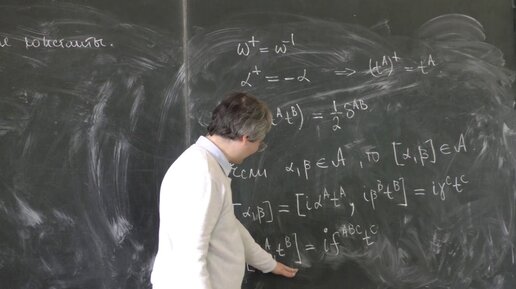 константы.
ω⁺ = ω⁻¹
α⁺ = -α ⟹ (t^A)⁺ = t^A
^A t^B) = 1/2 δ^{AB}
если α, β ∈ A, то [α, β] ∈ A
[α, β] = [iα^A t^A, iβ^B t^B] = iγ^C t^C
t^B] = i f^{ABC} t^C